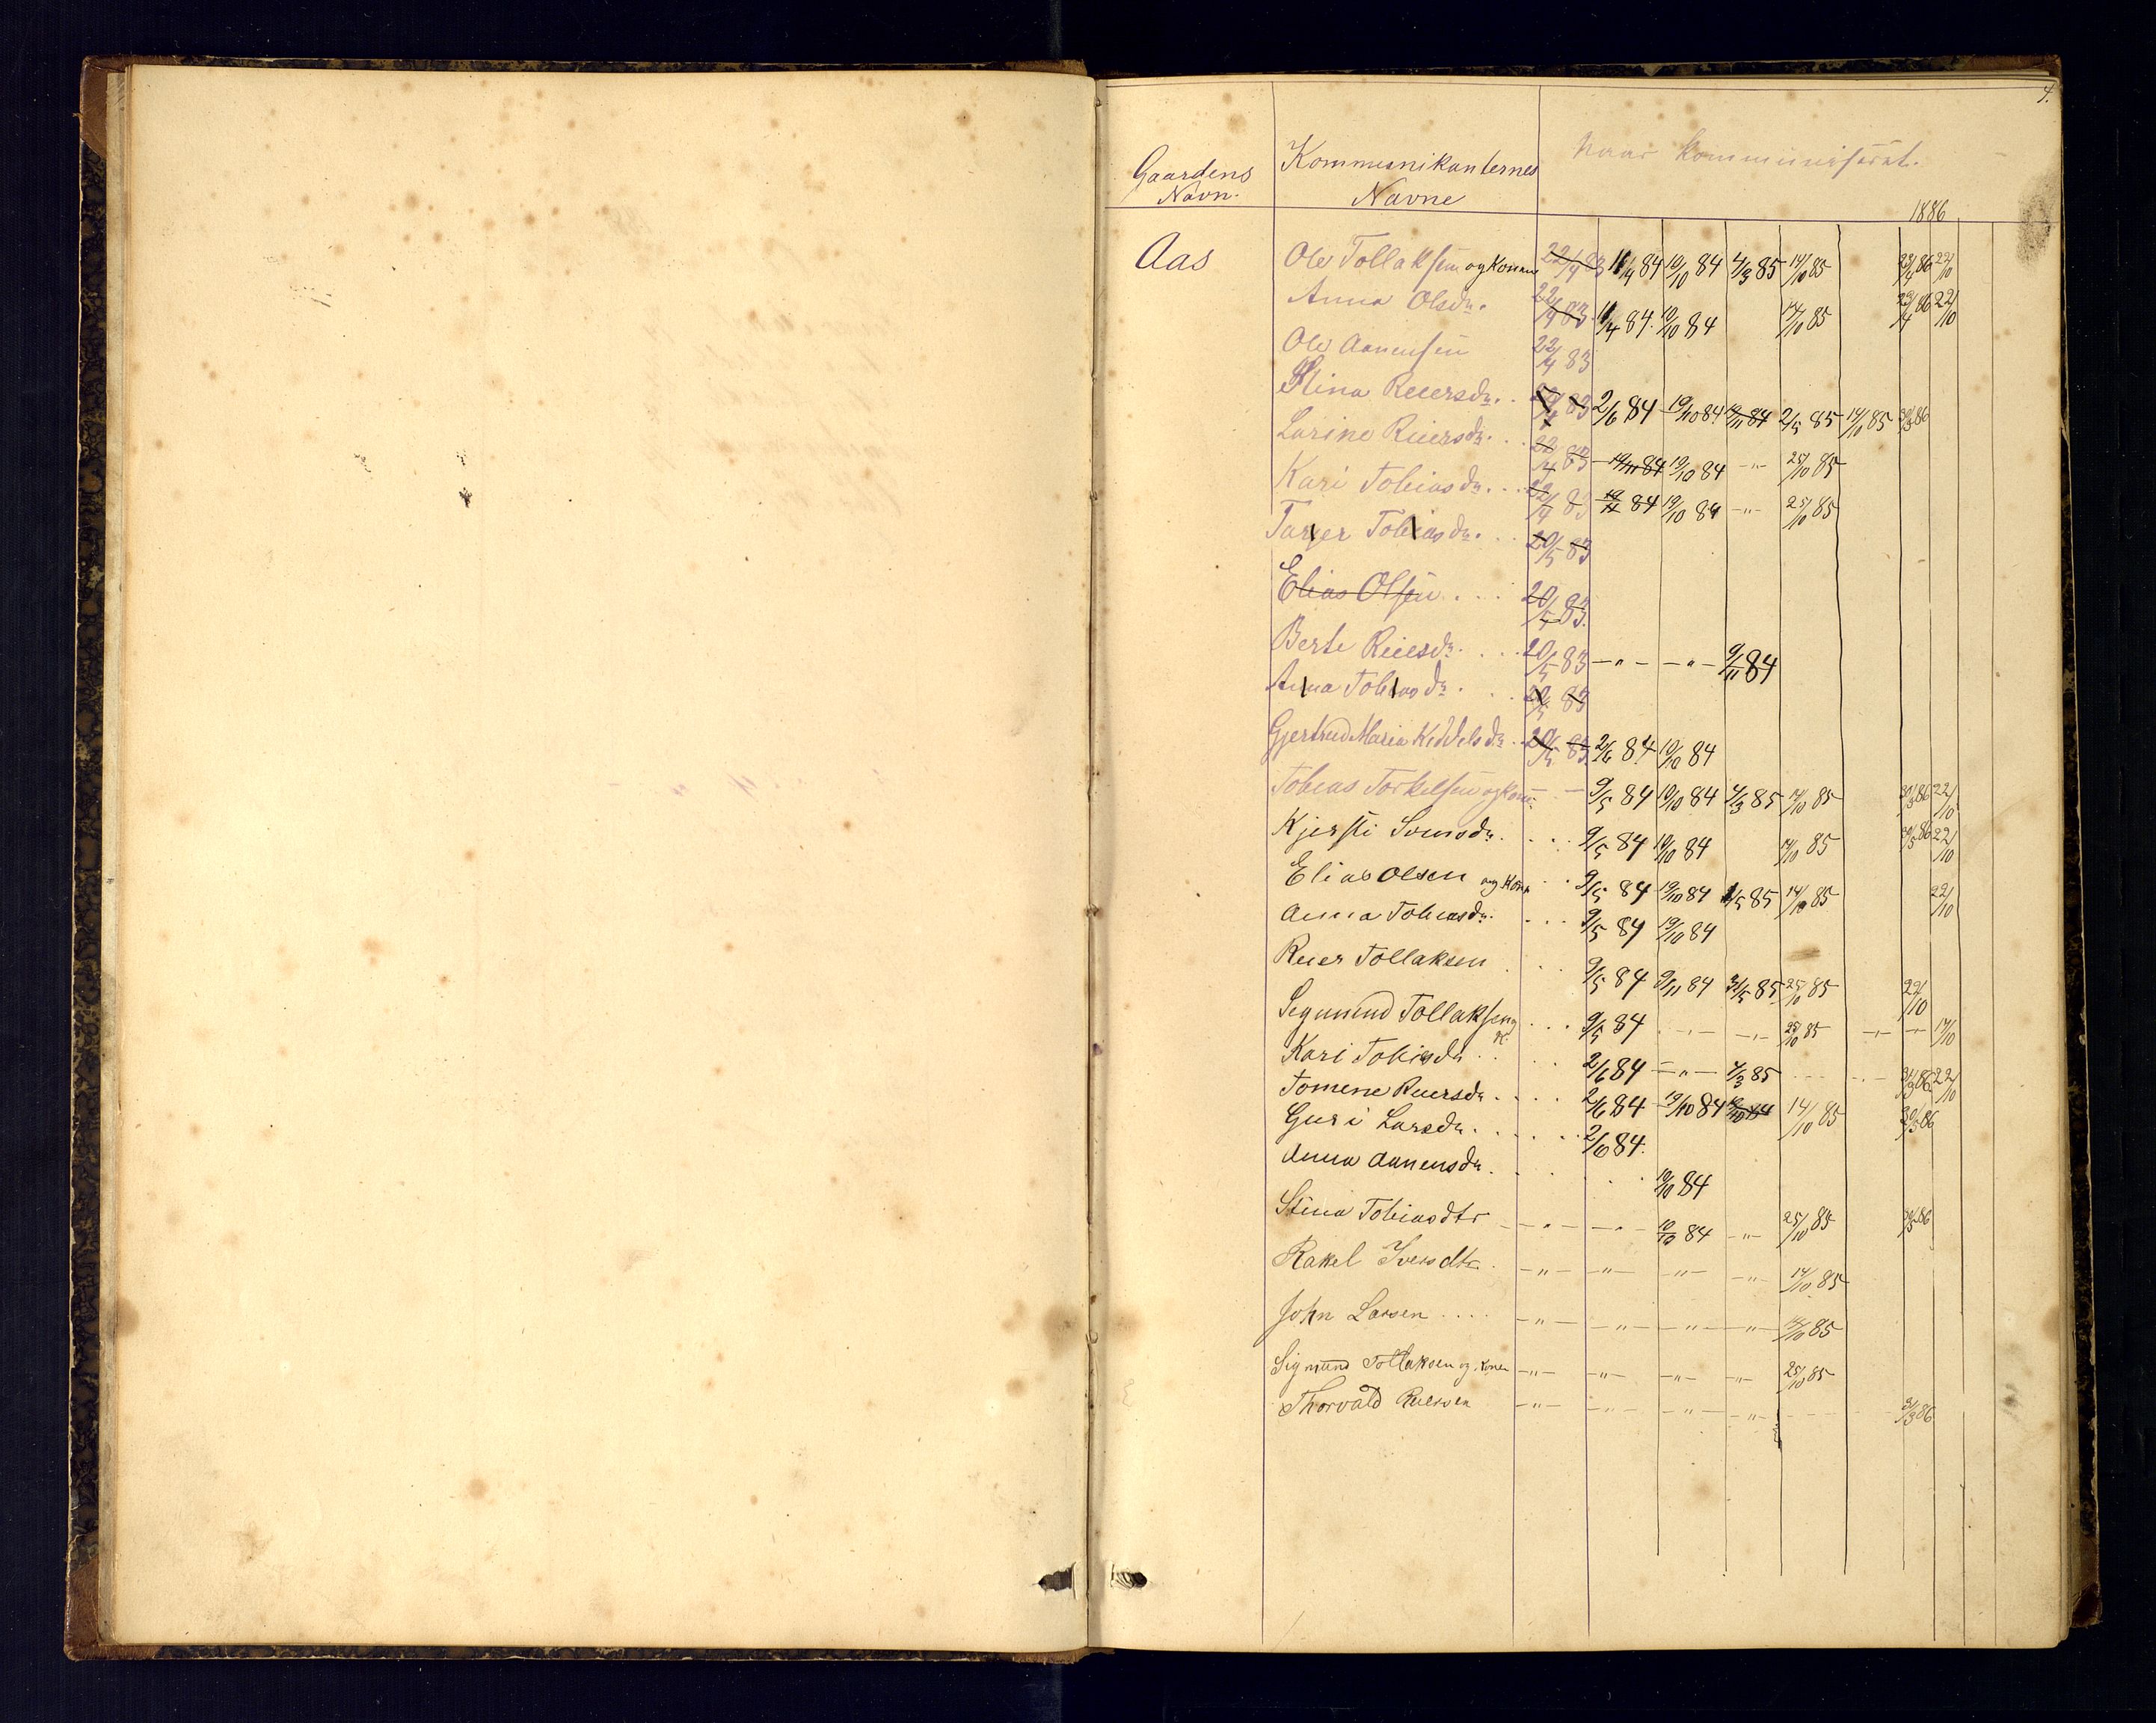 4.
Gaardens Navn. Kommunikanternes Navne Naar kommuniserat.
1886
Aas Ole Tollaksen og Konen 22/4 83 11/4 84 19/10 84 4/3 85 14/10 85 23/4 86 22/10
Anna Olsdr. 22/4 83. 11/4 84. 19/10 84 14/10 85 23/4 86 22/10
Ole Aanensen 22/4 83
Stina Reiersdr. . 83 2/6 84 19/10 84 84 2/5 85 14/10 85 30/3 86
Larine Reiersdr. . . 22/4 83 84 19/10 84 -"- 25/10 85
Kari Tobiasdr. . . 22/4 83 84 19/10 84 -"- 25/10 85
Tobiasdr. . . 20/5 83
Elias Olsen . . . 20/5 83.
Berte Reiesdr. . . . 20/5 83 -"- -"- 9/11 84
Anna Tobiasdr. . . 20/5 83
Gjertrud Maria Keddelsdr. . 20/5 83. 2/6 84 19/10 84
Tobias Torkelsen og Kone - - 9/5 84 19/10 84 4/3 85 14/10 85 30/3 86 22/10
Kjersti Svensdr. . . . 9/5 84 19/10 84 14/10 85 86 22/10
Elias Olsen og Kone . . 9/5 84 19/10 84 85 14/10 85 22/10
Anna Tobiasdr. . . . 9/5 84 19/10 84
Reier Tollaksen . . . 9/5 84 9/11 84 31/5 85 25/10 85 22/10
Sigmund Tollaksen og K. . . . 9/5 84 . -"- -"- 25/10 85 -"- -"- 17/10
Kari Tobiasdr . . . 2/6 84 -"- 4/3 85 - - - 31/3 86 22/10
Tomene Reiersdr. . . . 2/6 84 19/10 84 84 14/10 85 30/3 86
Guri Larsdr. . . . . . 2/6 84.
Anna Aanensdr. . . . . 19/10 84
Stina Tobiasdtr -"- -"- 19/10 84 -"- 25/10 85 86
Rakel Iversdtr. -"- -"- -"- -"- 14/10 85
John Larsen .... -"- -"- -"- -"- 14/10 85
Sigmund Tollaksen og Konen -"- -"- -"- -"- 25/10 85
Thorvald Reiersen -"- -"- -"- -"- - - - 31/3 86